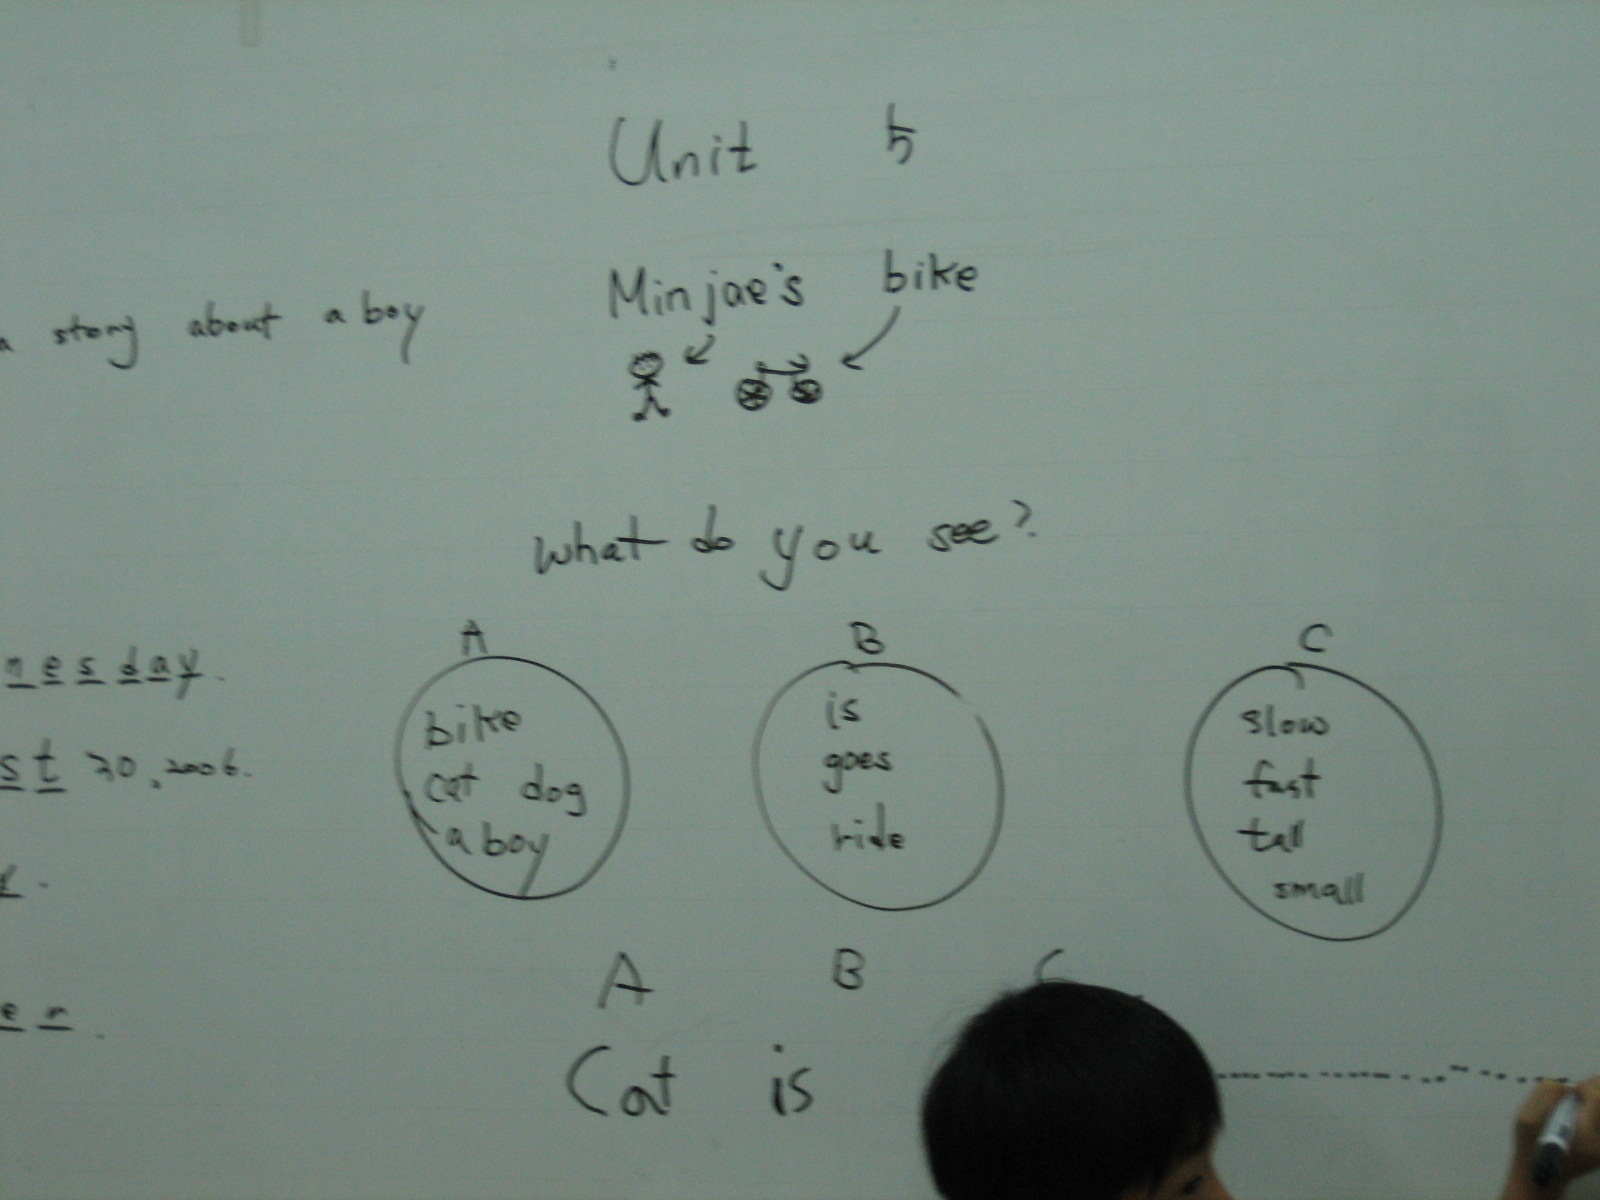 Unit 5
Minjae's bike
a story about a boy
What do you see?
A B C
nesday.
bike
cat dog
a boy
is
goes
ride
slow
fast
tall
small
st 30, 2006.
y.
er.
A B C
Cat is